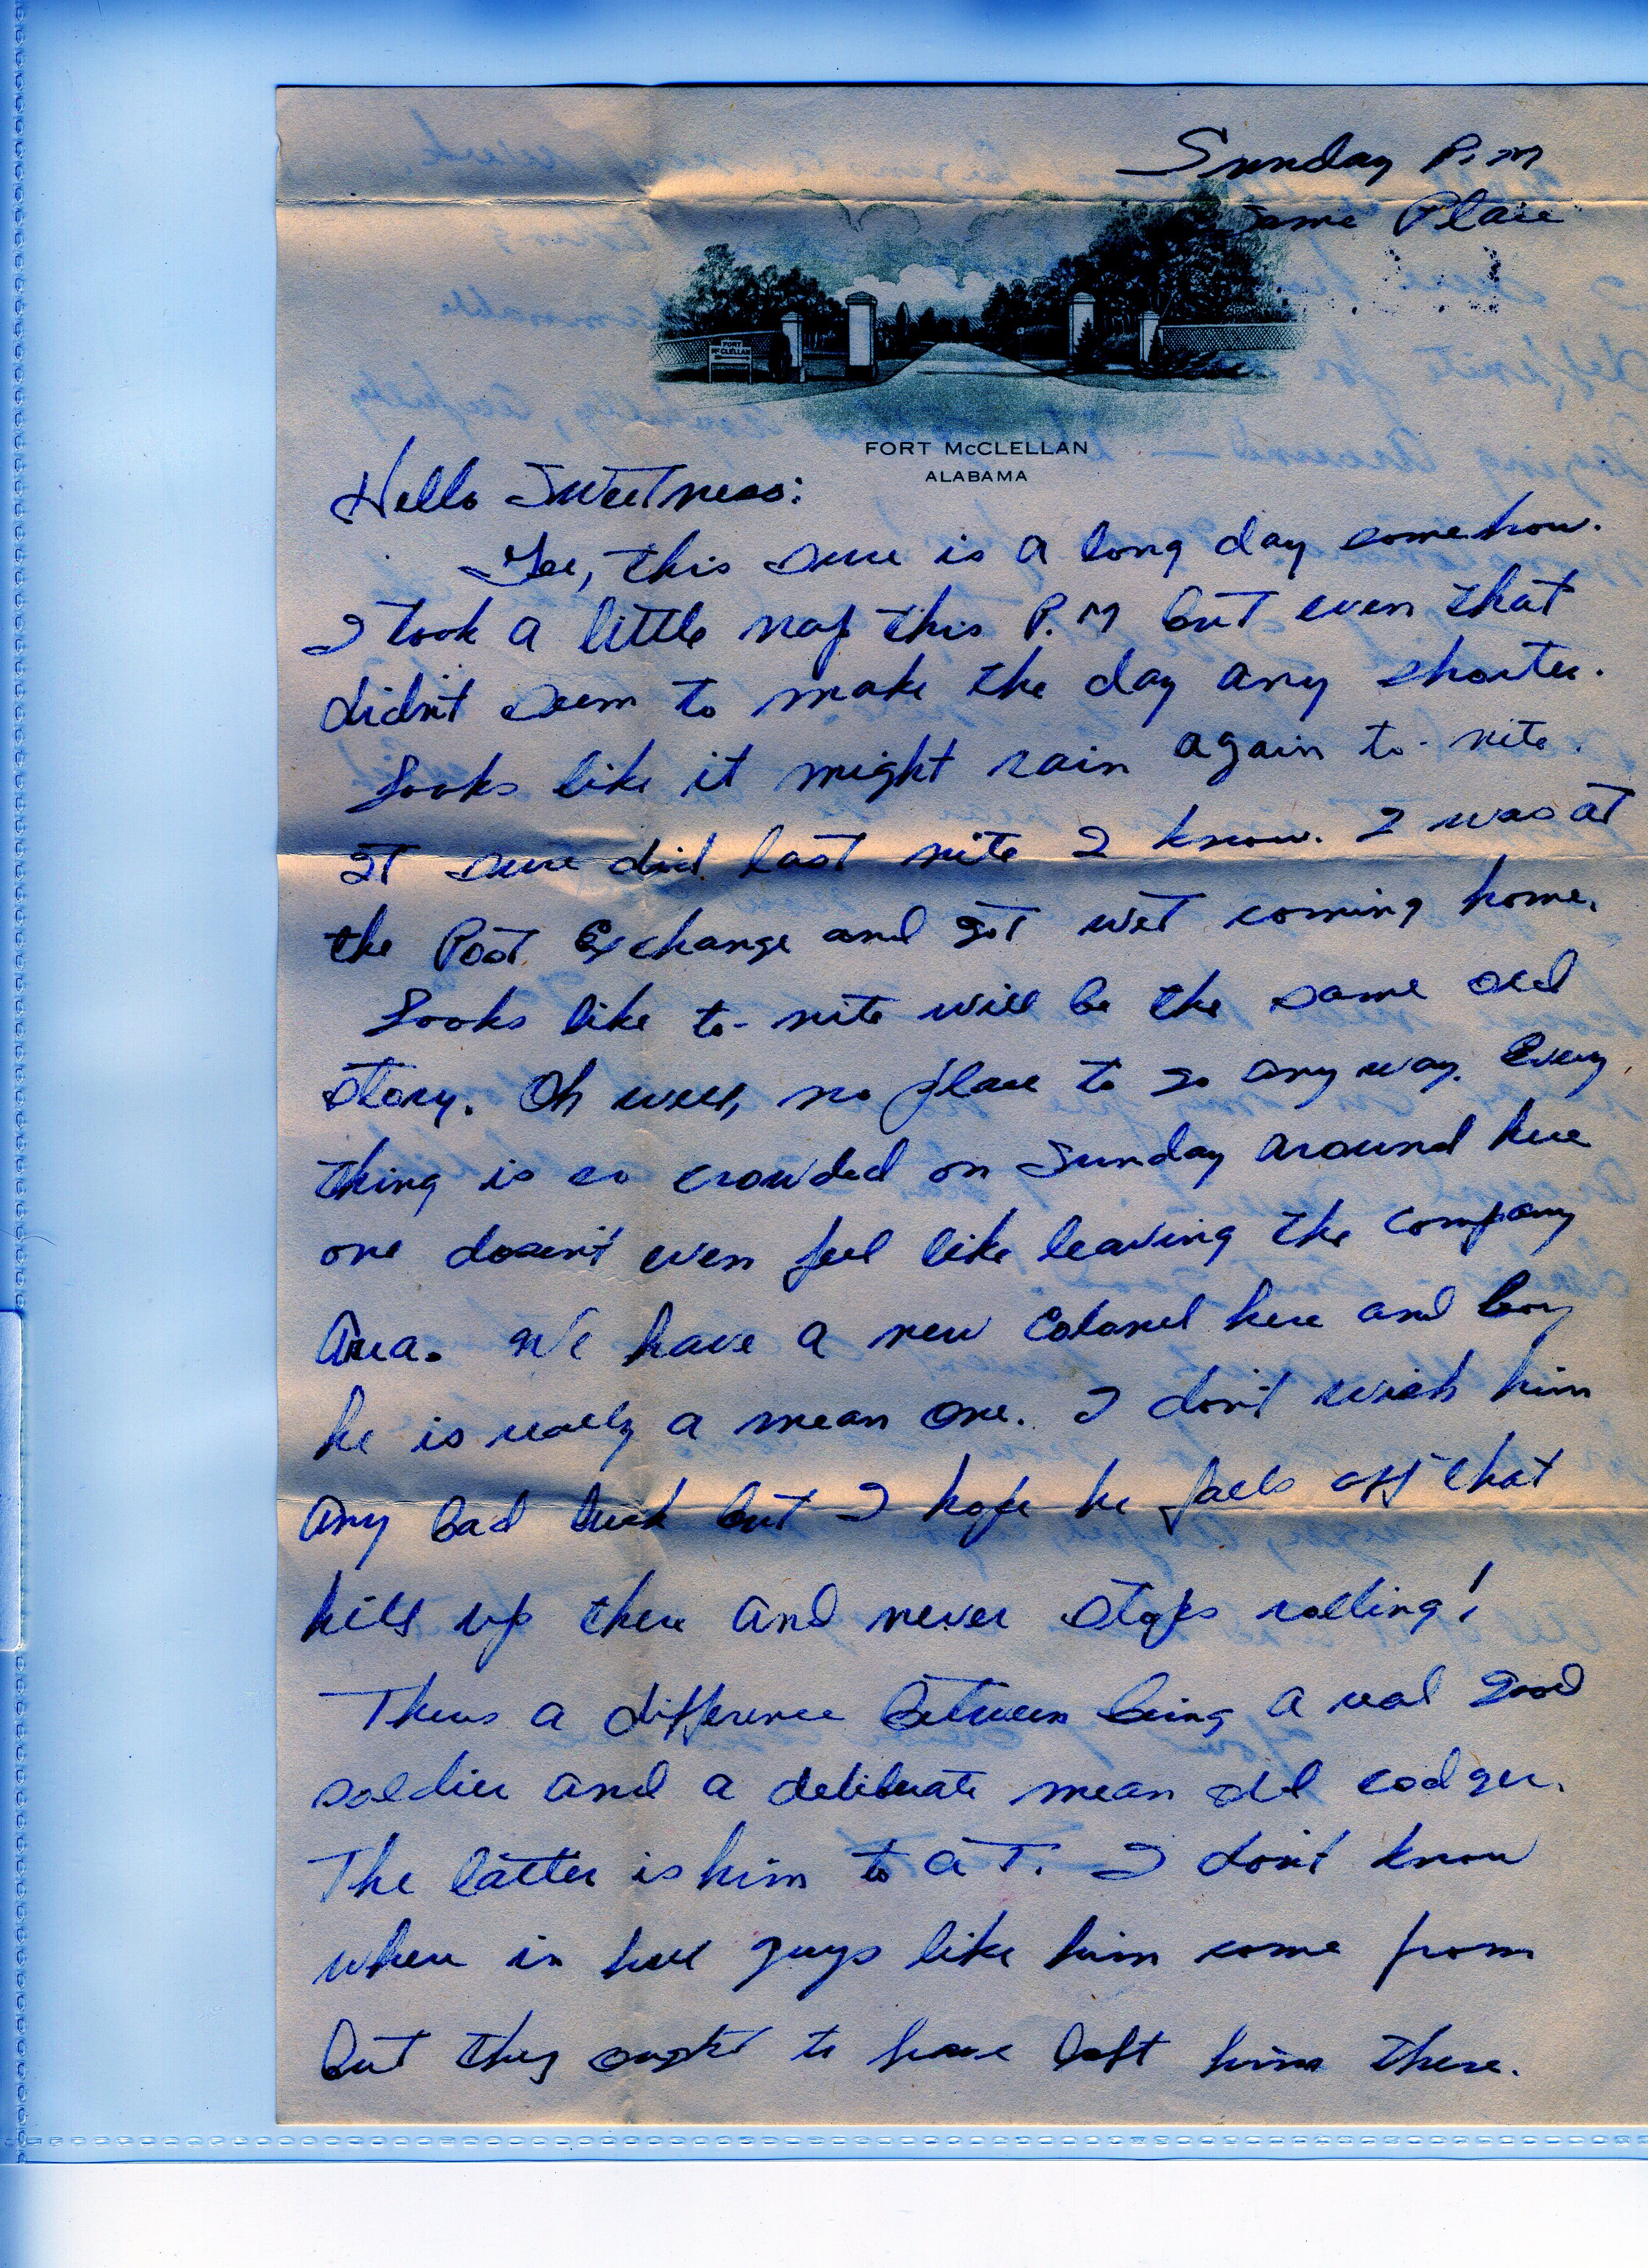 Sunday P.M
Same Place
FORT McCLELLAN
FORT McCLELLAN
ALABAMA
Hello Sweetness:
Gee, this sure is a long day somehow.
I took a little nap this P.M but even that
didn't seem to make the day any shorter.
Looks like it might rain again to-nite.
It sure did last nite I know. I was at
the Post Exchange and got wet coming home.
Looks like to-nite will be the same old
story. Oh well, no place to go any way. Every
thing is so crowded on Sunday around here
one doesn't even feel like leaving the company
Area. We have a new Colonel here and boy
he is really a mean one. I don't wish him
any bad luck but I hope he falls off that
hill up there and never stops rolling!
Theres a difference between being a real good
soldier and a deliberate mean old codger.
The latter is him to a T. I don't know
where in hell guys like him come from
but they ought to have left him there.